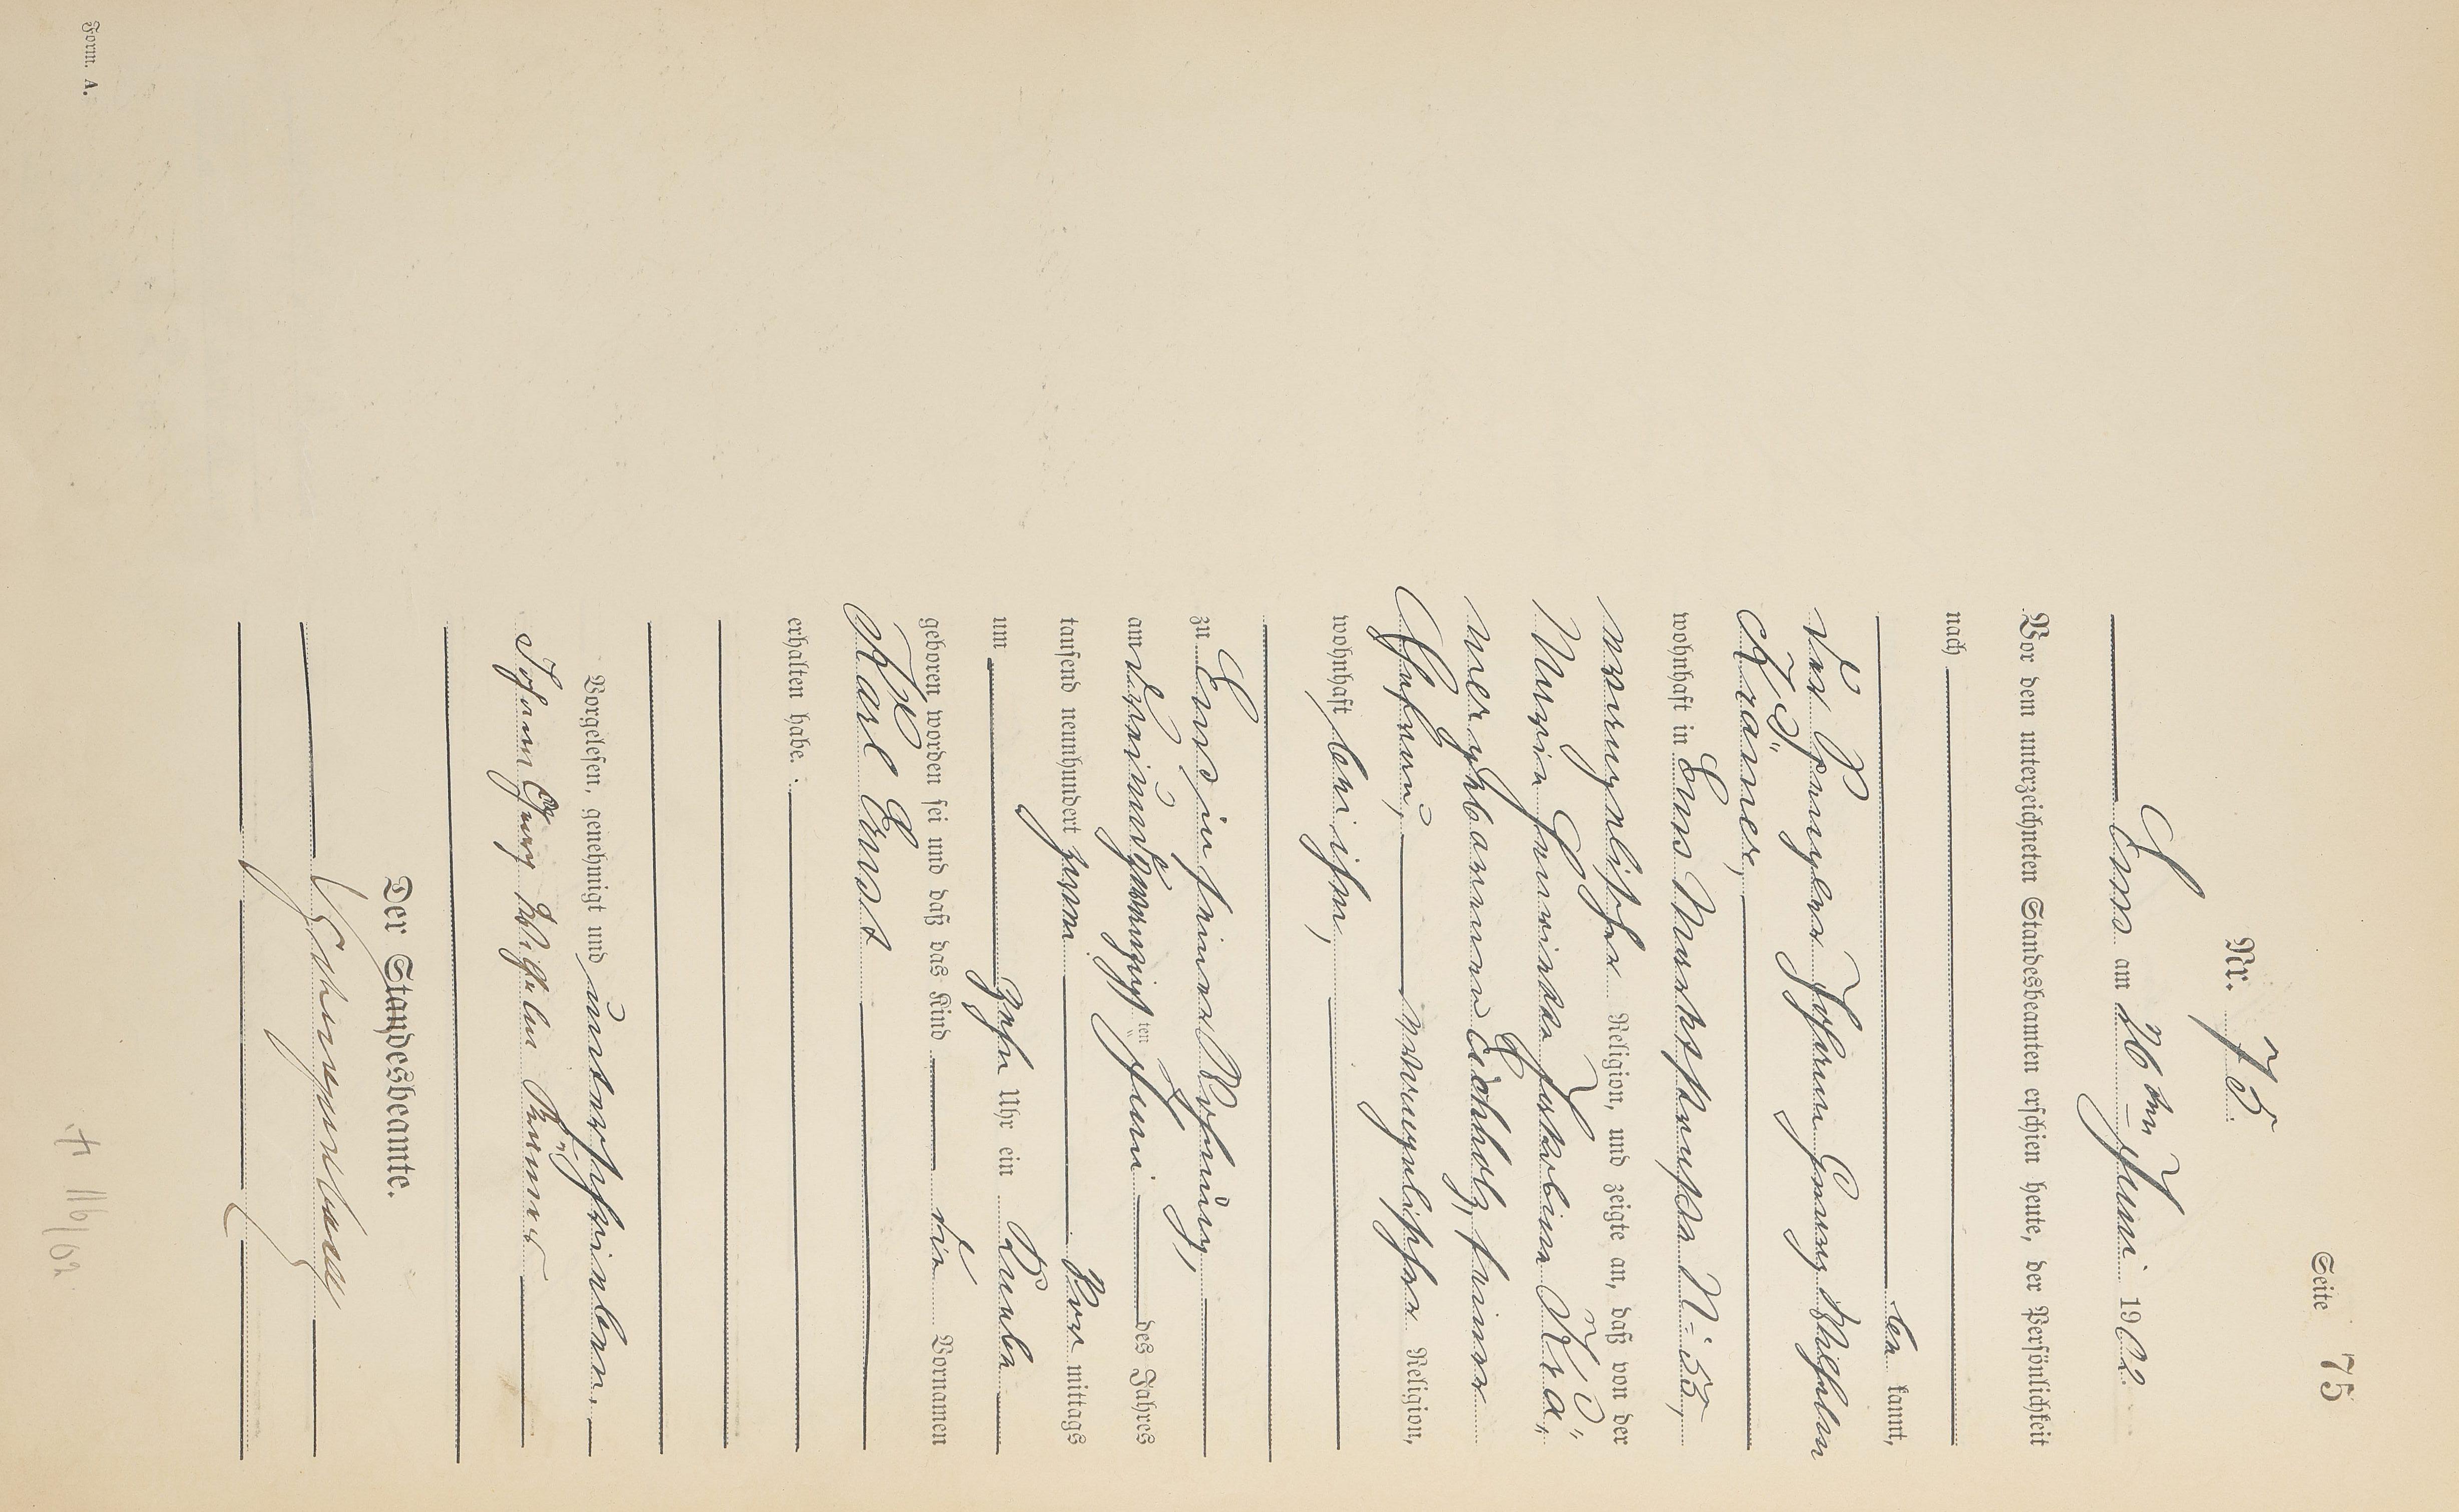 Seite 75
Nr. 75.
Ems am 26ten Juni 1902.
Vor dem unterzeichneten Standesbeamten erschien heute, der Persönlichkeit
nach
be kannt,
der Spengler Johann Georg Wilhelm
Krämer,
wohnhaft in Ems Marktstraße No 55,
evangelischer Religion, und zeigte an, daß von der
Maria Henriette Jakobine Krä„
mer geborenen Eichholz, seiner
Ehefrau, evangelischer Religion,
wohnhaft bei ihm,
zu Ems in seiner Wohnung,
am dreiundzwanzigsten Juni des Jahres
tausend neunhundert zwei Vor mittags
um Zehn Uhr ein Knabe
geboren worden sei und daß das Kind die Vornamen
Karl Ernst
erhalten habe.
Vorgelesen, genehmigt und unterschrieben.
Johann Georg Wilhelm Krämer
Der Standesbeamte.
Form. A.